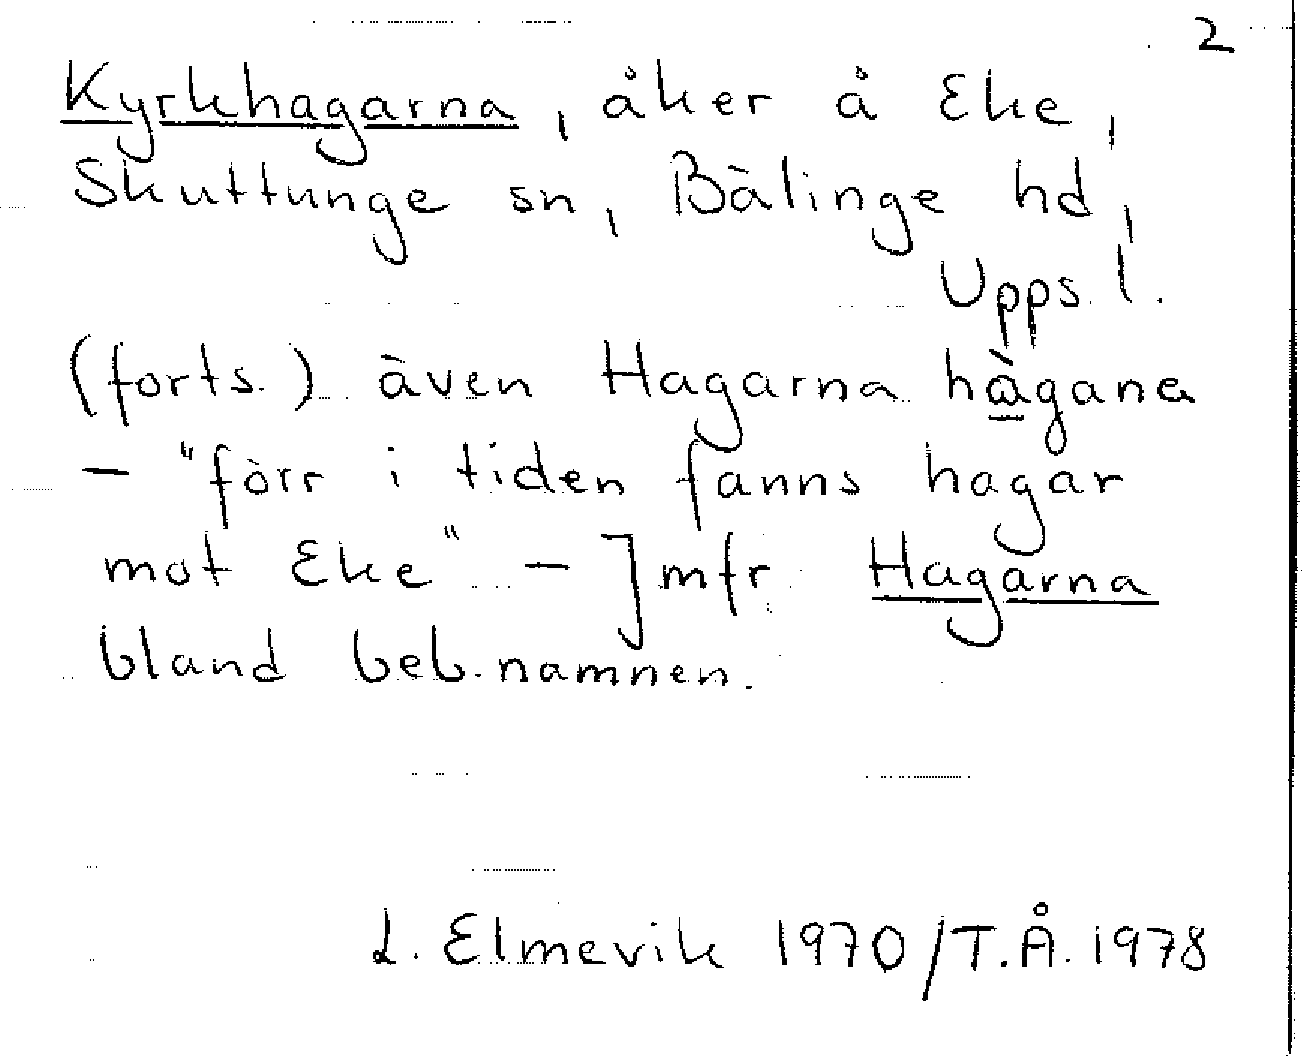 2
Kyrkhagarna, åker å Eke,
Skuttunge sn, Bälinge hd,
Upps. l.
(forts.) även Hagarna hàgana
- "förr i tiden fanns hagar
mot Eke" - ] mfr Hagarna
bland beb.namnen.
L. Elmevik 1970/T.Å. 1978